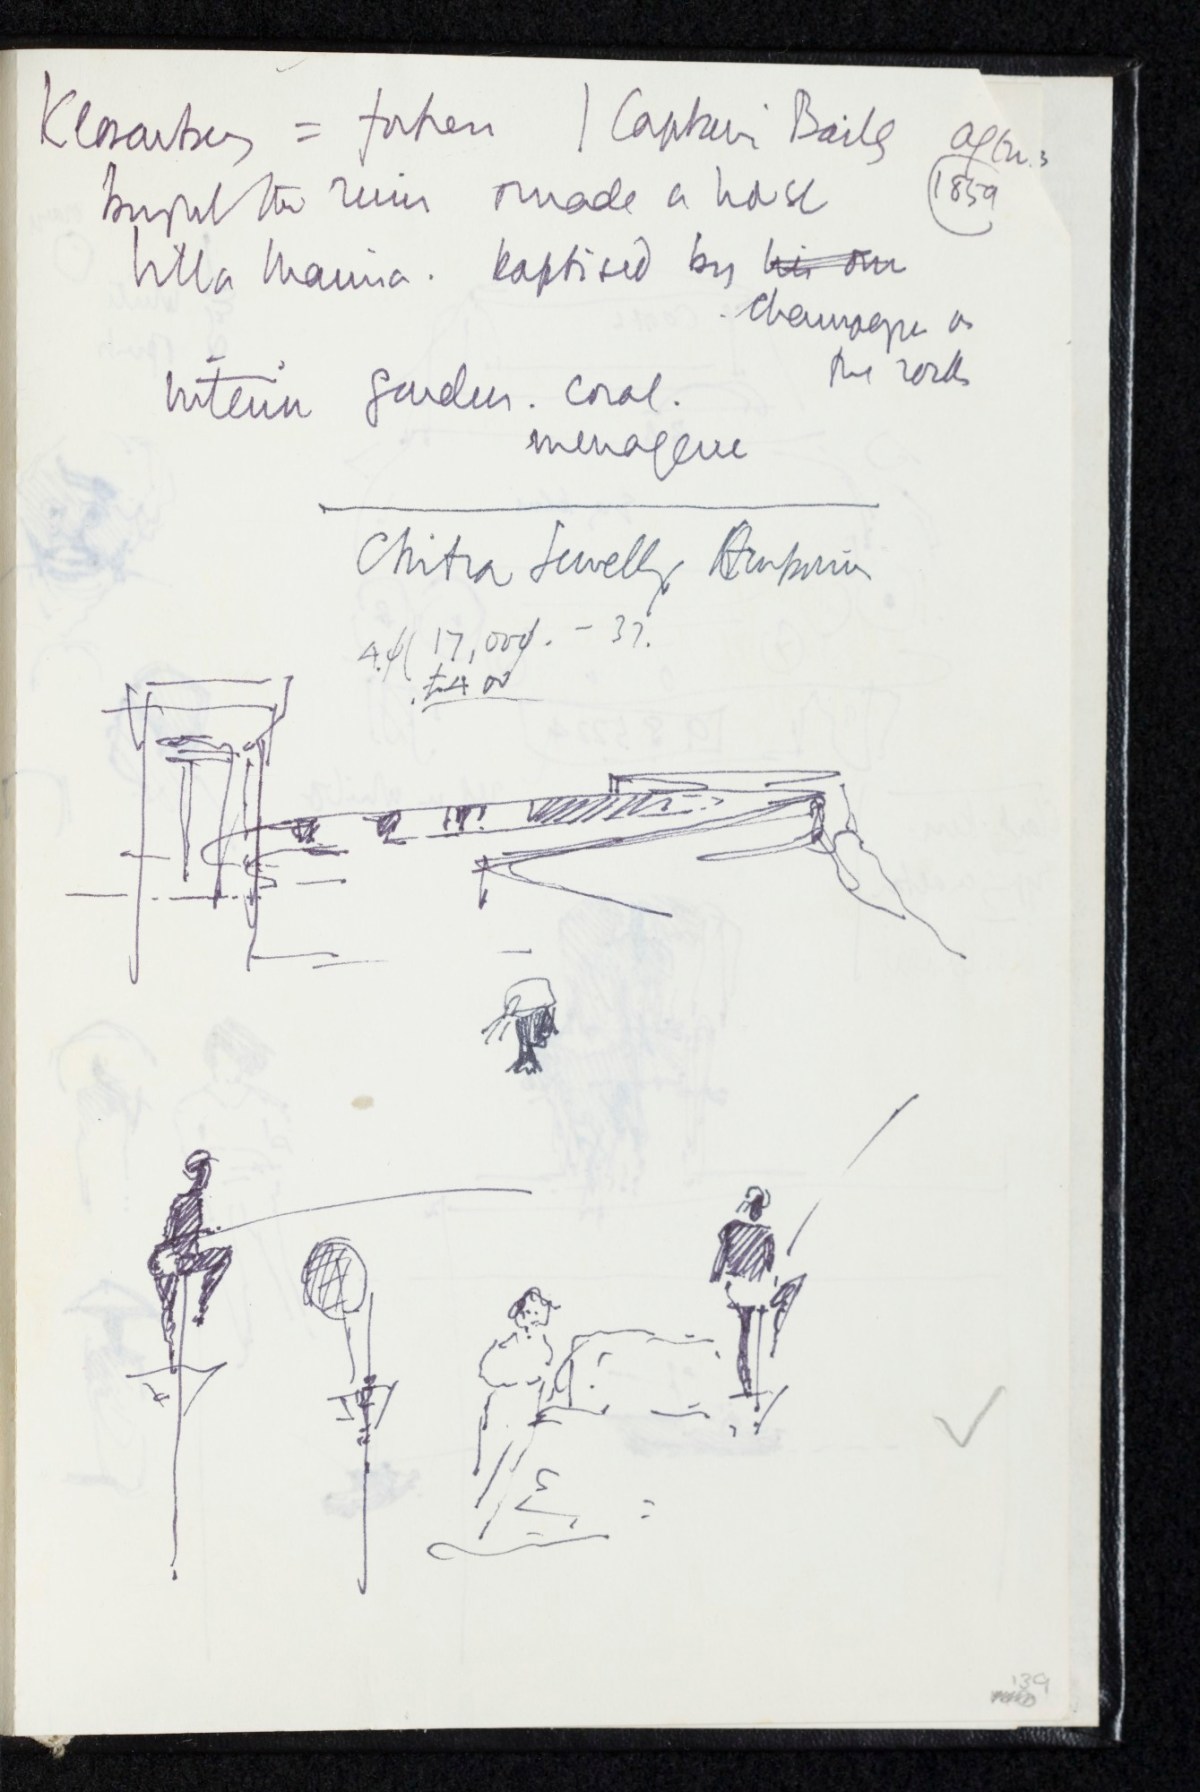 Klosantsburg = fortress / Captain Baily agent.
1859
bought the ruin & made a house
Villa Marina. baptised by
champagne on
the rocks
interior garden. coral.
menagerie
Chitra Jewelly Emporium
17,000/. - 37.
400
139